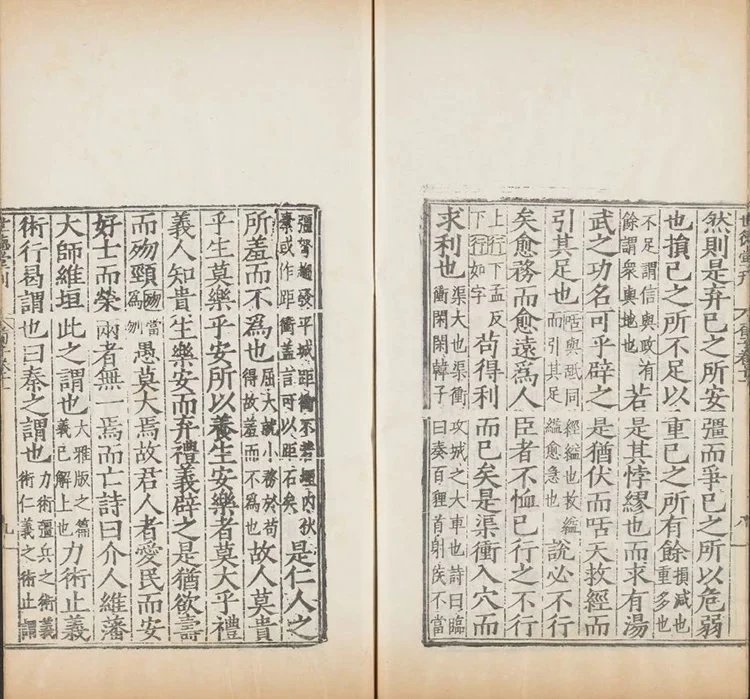 然則是弃已之所安彊而爭已之所以危弱
也損已之所不足以重已之所有餘損減也重多也
不足謂信與政有餘謂衆與地也若是其悖繆也而求有湯
武之功名可乎辟之是猶伏而咶天救經而
引其足也咶與䑛同經縊也故縊而引其足縊愈急也說必不行
矣愈務而愈遠爲人臣者不恤已行之不行
上行下孟反下行如字苟得利而已矣是渠衝入穴而
求利也渠大也渠衝攻城之大車也詩曰臨衝閑閑韓子曰奏百狸首射侯不當
彊弩趨發平城距衝不若堙內伏橐或作距衝盖言可以距石矣是仁人之
所羞而不爲也屈大就小務於苟得故羞而不爲也故人莫貴
乎生莫樂乎安所以養生安樂者莫大乎禮
義人知貴生樂安而弃禮義辟之是猶欲壽
而歾頸歾當爲刎愚莫大焉故君人者愛民而安
好士而榮兩者無一焉而亡詩曰介人維藩
大師維垣此之謂也大雅版之篇義已解上也力術止義
術行曷謂也曰秦之謂也力術彊兵之術義術仁義之術止謂